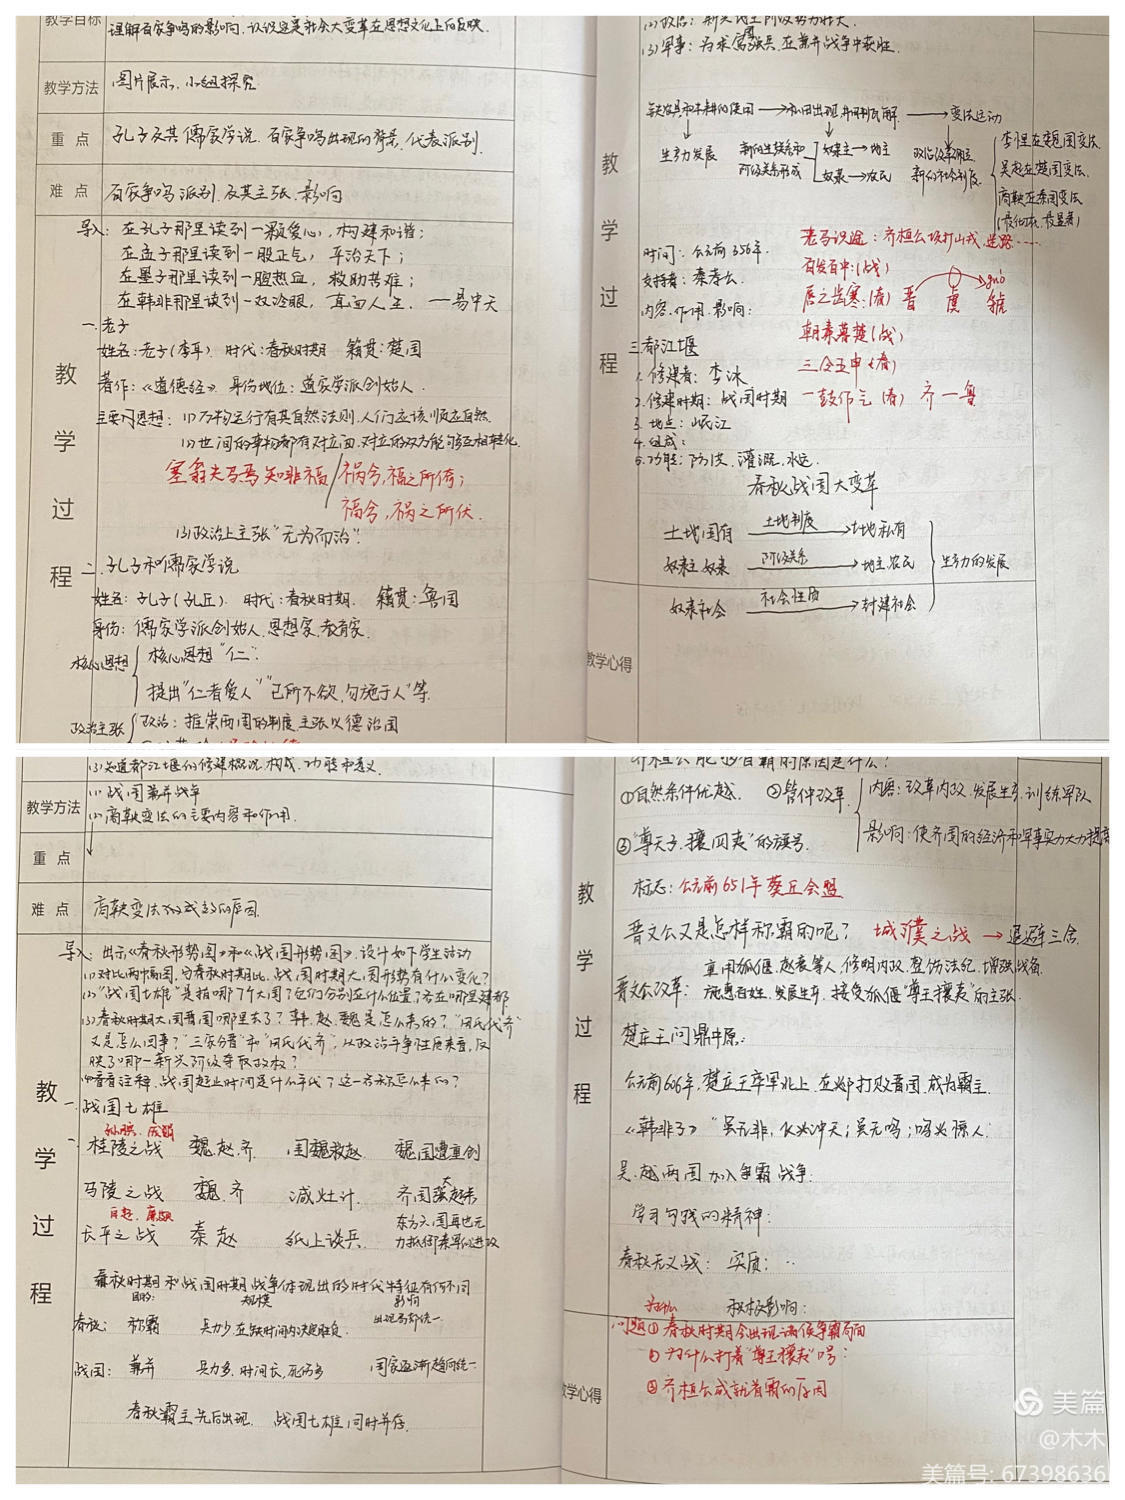 教学目标
理解百家争鸣的影响，认识这是社会大变革在思想文化上的反映.
教学方法
图片展示、小组探究
重 点
孔子及其儒家学说. 百家争鸣出现的背景、代表派别.
难 点
百家争鸣派别、及其主张、影响
教学过程
导入：在孔子那里读到一颗爱心，构建和谐；
在孟子那里读到一股正气，平治天下；
在墨子那里读到一腔热血，救助苦难；
在韩非那里读到一双冷眼，直面人生. —易中天
一.老子
姓名：老子(李耳) 时代：春秋时期 籍贯：楚国
著作：《道德经》 身份地位：道家学派创始人.
主要思想：(1)万物运行有其自然法则，人们应该顺应自然
(2)世间的事物都有对立面，对立的双方能够互相转化.
塞翁失马焉知非福/祸兮，福之所倚；
福兮，祸之所伏.
(3)政治上主张"无为而治".
二.孔子和儒家学说
姓名：孔子(孔丘). 时代：春秋时期. 籍贯：鲁国
身份：儒家学派创始人.思想家.教育家.
核心思想
核心思想"仁".
提出"仁者爱人""己所不欲，勿施于人"等.
政治主张
政治：推崇西周的制度.主张以德治国
(3)军事：为求富国强兵，在兼并战争中获胜.
教学过程
铁农具和牛耕的使用→私田出现，井田制瓦解.→变法运动
生产力发展
新的生产关系和
阶级关系形成
奴隶主→地主
奴隶→农民
李悝在魏国变法.
吴起在楚国变法.
商鞅在秦国变法
(最彻底、最显著)
时间：公元前356年.
支持者：秦孝公.
内容、作用、影响：
老马识途：齐桓公攻打山戎，迷路……
百发百中：(战)
唇亡齿寒：(春) 晋 虞 虢 guó
朝秦暮楚(战)
三令五申(春)
一鼓作气(春) 齐—鲁
三.都江堰
1.修建者：李冰
2.修建时期：战国时期
3.地点：岷江
4.组成：
5.功能：防洪、灌溉、水运.
春秋战国大变革
土地国有 土地制度→土地私有
奴隶主 奴隶 阶级关系→地主.农民
奴隶社会 社会性质→封建社会
生产力的发展
教学心得
(3)知道都江堰的修建概况、构成、功能和意义.
教学方法
(1)战国兼并战争
(2)商鞅变法的主要内容和作用.
重 点
难 点
商鞅变法及成功的原因.
教学过程
导入：出示《春秋形势图》和《战国形势图》.设计如下学生活动
(1)对比两幅图，与春秋时期比，战国时期大国形势有什么变化？
(2)"战国七雄"是指哪7个大国？它们分别在什么位置？各在哪里建都
(3)春秋时期大国晋国哪里去了？韩.赵.魏是怎么来的？"田氏代齐"
又是怎么回事？"三家分晋"和"田氏代齐"，从政治斗争性质来看，反
映了哪一新兴阶级夺取政权？
(4)看看注释，战国起止时间是什么年代？这一名称怎么来的？
一.战国七雄
孙膑、庞涓
桂陵之战 魏.赵.齐. 围魏救赵. 魏国遭重创
马陵之战 魏.齐 减灶计. 齐国强大起来
白起、廉颇
长平之战 秦 赵 纸上谈兵. 东方六国再也无
力抵御秦军的进攻
春秋时期和战国时期战争体现出的时代特征有何不同
目的： 规模 影响
春秋：称霸 兵力少，在短时间内决定胜负. 出现局部统一
战国：兼并 兵力多，时间长，死伤多 国家逐渐趋向统一
春秋霸主先后出现. 战国七雄同时并存.
齐桓公能够首霸的原因是什么？
①自然条件优越. ②管仲改革.
内容：改革内政、发展生产、训练军队
影响：使齐国的经济和军事实力大力提高
③"尊天子、攘四夷"的旗号.
标志：公元前651年葵丘会盟
教学过程
晋文公又是怎样称霸的呢？ 城濮之战→退避三舍.
晋文公改革：
重用狐偃、赵衰等人，修明内政，整饬法纪，增强战备.
施惠百姓，发展生产，接受狐偃"尊王攘夷"的主张.
楚庄王问鼎中原：
公元前606年，楚庄王率军北上，在邲打败晋国，成为霸主.
吴.越两国加入争霸战争.
学习勾践的精神：
春秋无义战： 实质：..
为什么 积极影响：
问题①春秋时期会出现诸侯争霸局面
②为什么打着"尊王攘夷"口号：
③齐桓公成就首霸的原因
教学心得
美篇
@木木
美篇号: 67398636